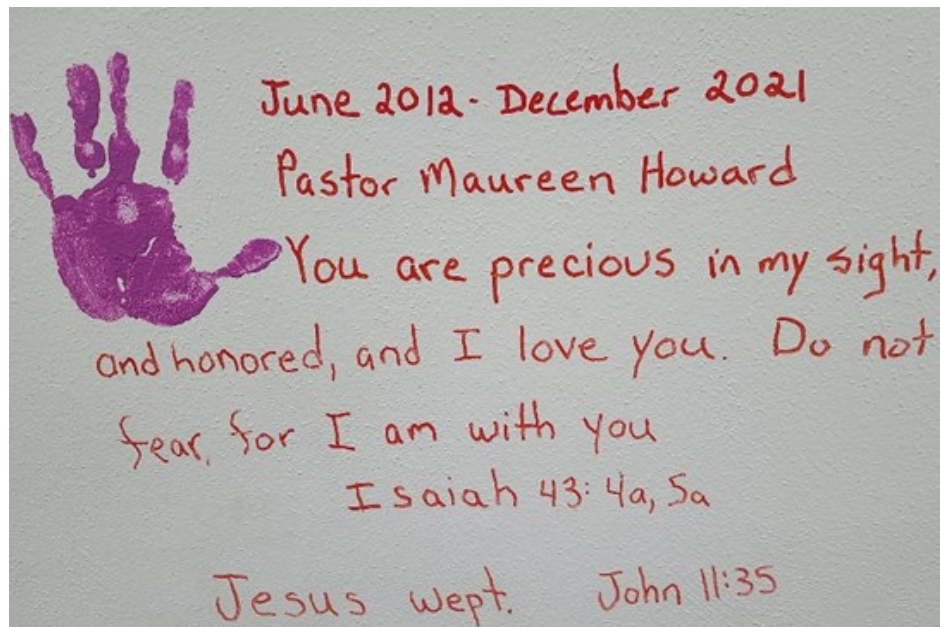 June 2012 - December 2021
Pastor Maureen Howard
You are precious in my sight,
and honored, and I love you. Do not
fear, for I am with you
Isaiah 43: 4a, 5a
Jesus wept. John 11:35